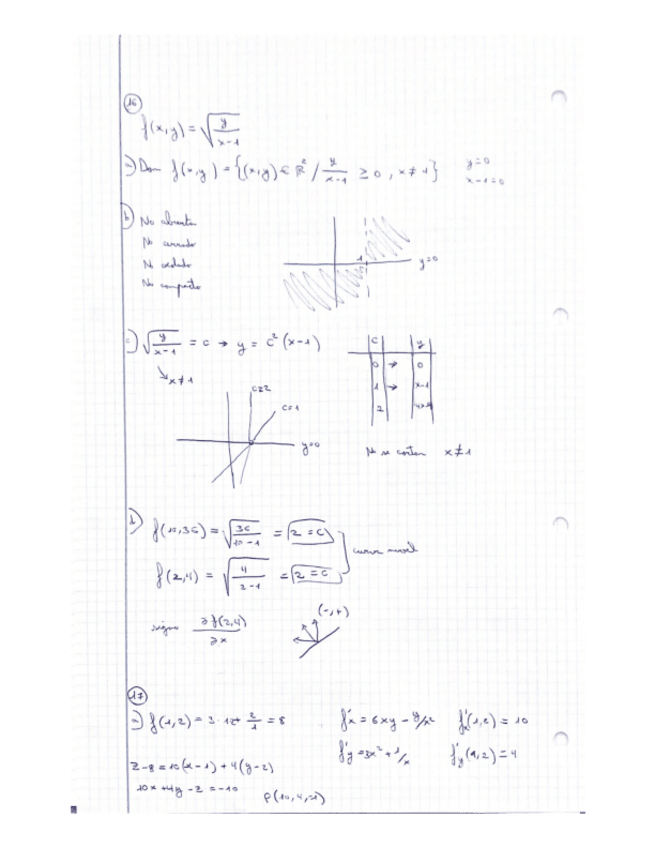 16
f(x,y) = √(y/(x-1))
a) Dom f(x,y) = {(x,y) ∈ ℝ² / y/(x-1) ≥ 0, x ≠ 1} y=0
x-1=0
b) No abierto
No cerrado
No acotado
No compacto
1 y=0
c) √(y/(x-1)) = c → y = c² (x-1)
↘ x≠1
C y
0 → 0
1 → x-1
2 4x-4
c=2
c=1
y=0
No se cortan x≠1
d) f(10,36) = √(36/(10-1)) = 2 = C
curva nivel
f(2,4) = √(4/(2-1)) = 2 = C
signo ∂f(2,4)/∂x (-,+)
17
a) f(1,2) = 3·1·2+ 2/1 = 8 f'x = 6xy - y/x² f'x(1,2) = 10
f'y = 3x² + 1/x f'y(1,2) = 4
z-8 = 10(x-1) + 4(y-2)
10x+4y-z = -10 P(10,4,-1)